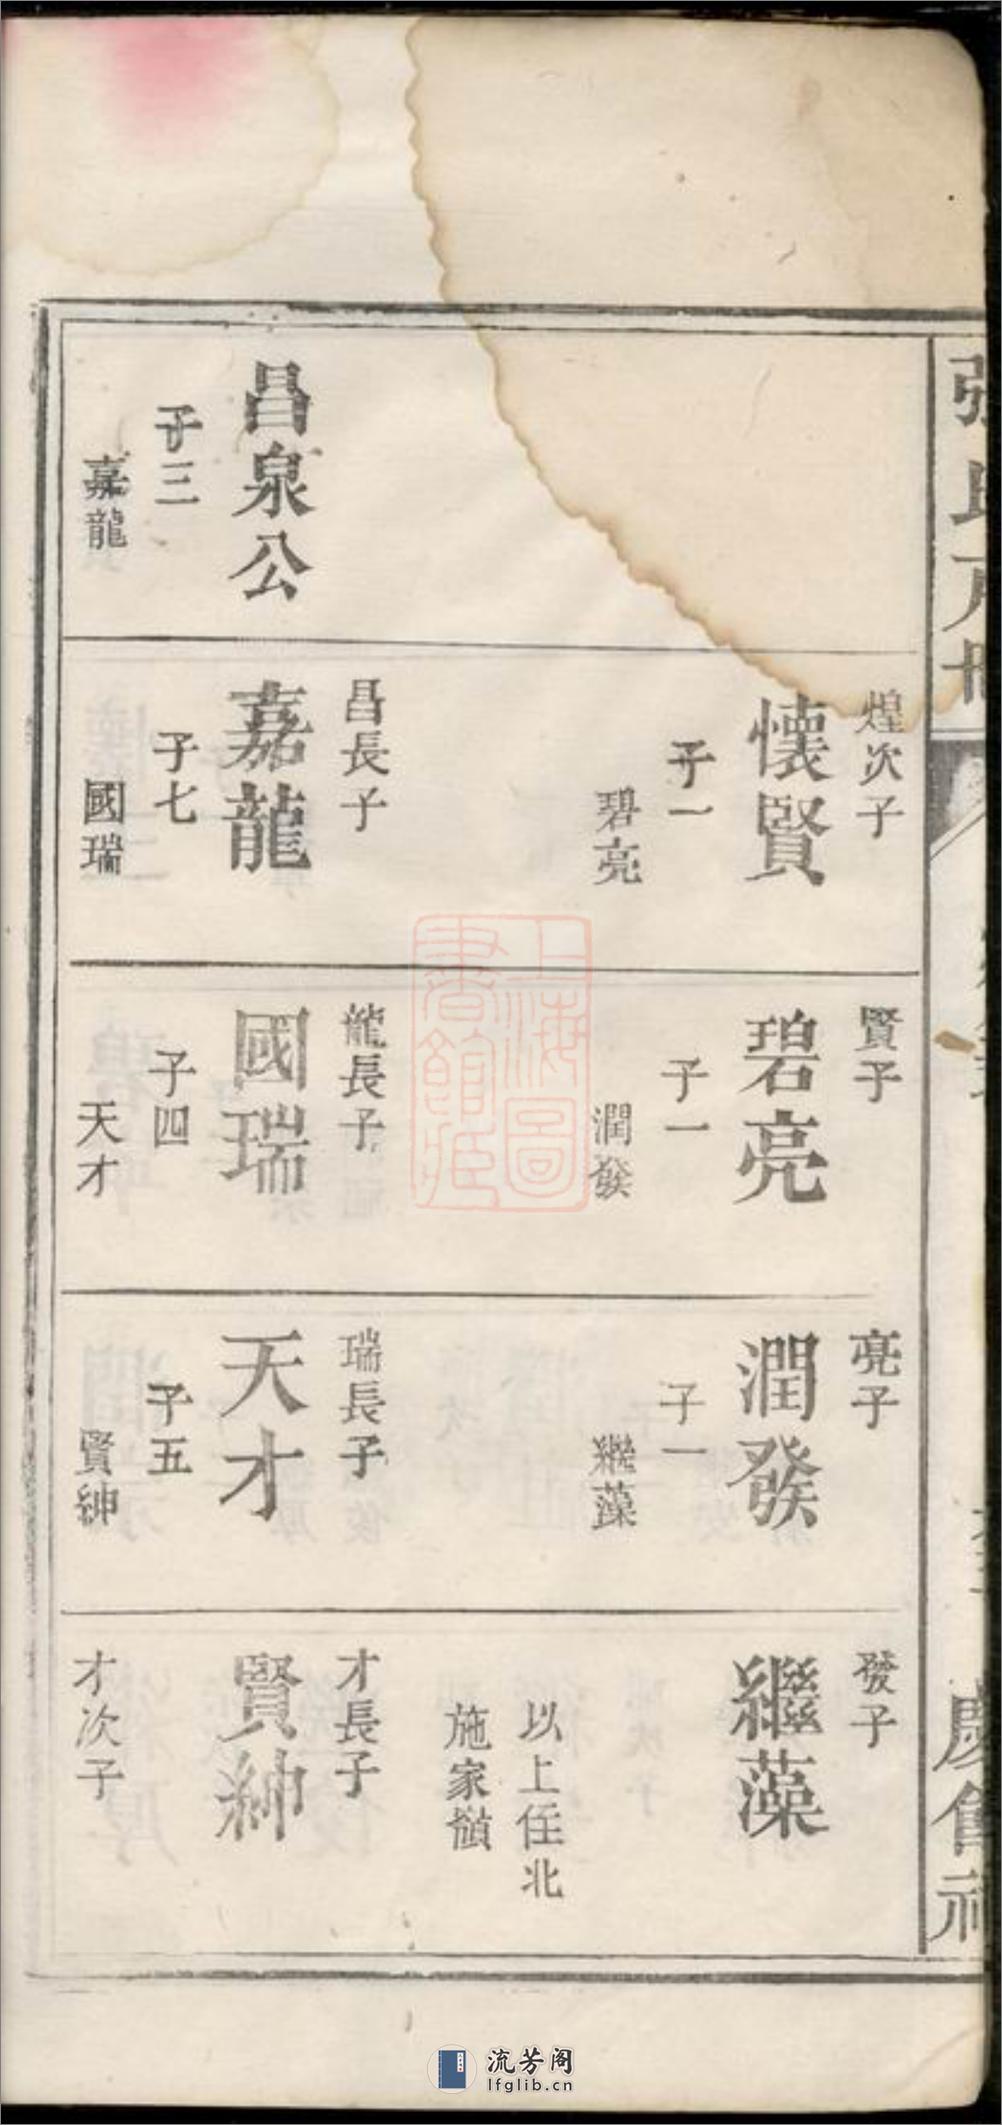 張氏
慶
煌次子
懷賢
子一
碧亮
昌長子
嘉龍
子七
國瑞
昌泉公
子三
嘉龍
賢子
碧亮
子一
潤發
龍長子
國瑞
子四
天才
亮子
潤發
子一
繼藻
瑞長子
天才
子五
賢紳
發子
繼藻
以上住北
施家嶺
才長子
賢紳
才次子
上海圖
書館藏
流芳阁
lfglib.cn